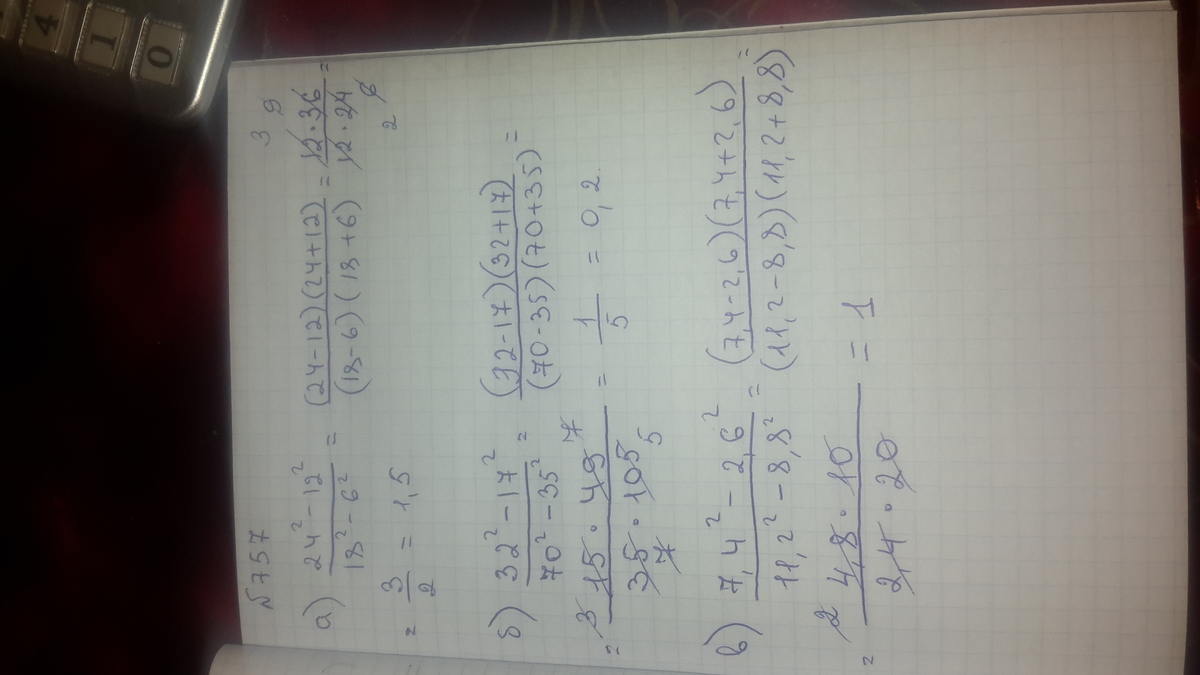 №757
а) (24² - 12²)/(18² - 6²) = ((24-12)(24+12))/((18-6)(18+6)) = (12·36)/(12·24) =
3 9
2 6
= 3/2 = 1,5
б) (32² - 17²)/(70² - 35²) = ((32-17)(32+17))/((70-35)(70+35)) =
= (15·49)/(35·105) = 1/5 = 0,2.
3 7
7 5
в) (7,4² - 2,6²)/(11,2² - 8,8²) = ((7,4-2,6)(7,4+2,6))/((11,2-8,8)(11,2+8,8)) =
= (4,8·10)/(2,4·20) = 1
2
4
1
0